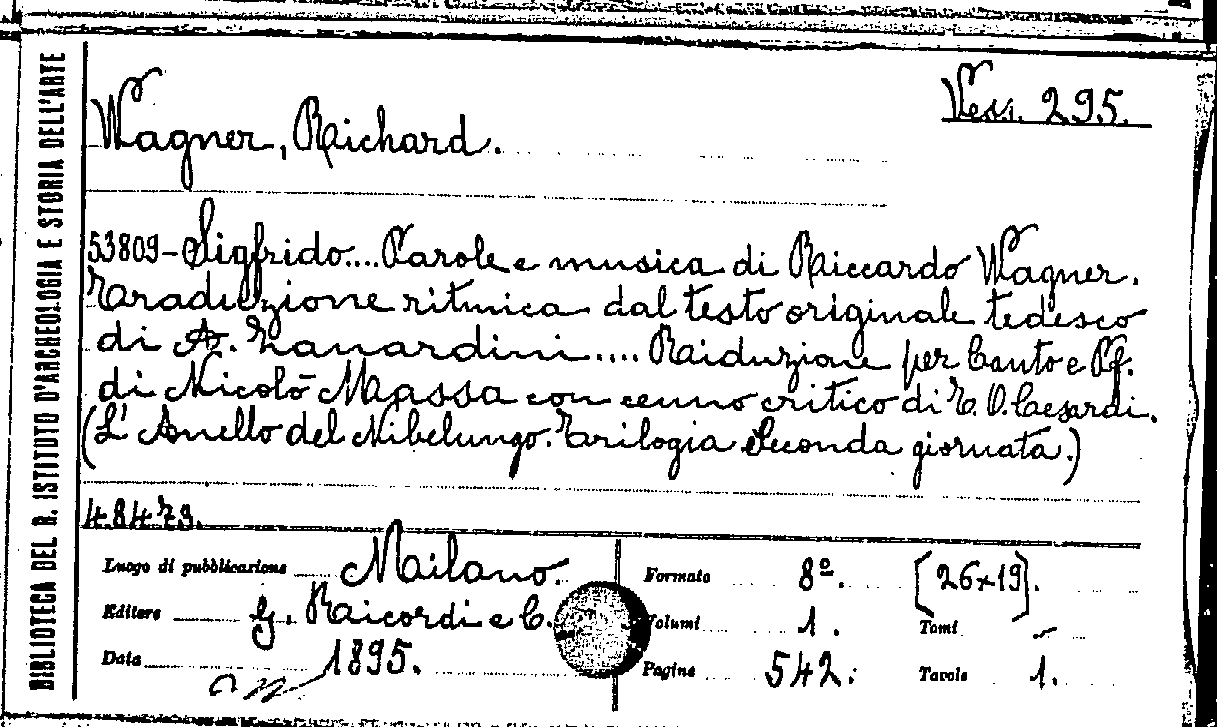 BIBLIOTECA DEL R. ISTITUTO D'ARCHEOLOGIA E STORIA DELL'ARTE
Vess. 295.
Wagner, Richard.
53809 - Sigfrido.... Parole e musica di Riccardo Wagner.
Traduzione ritmica dal testo originale tedesco
di A. Zanardini.... Riduzione per Canto e Pf.
di Nicolò Massa con cenno critico di
(L'Anello del Nibelungo. Trilogia Seconda giornata.)
48473.
Luogo di pubblicazione Milano.
Editore G. Ricordi e C.
Data 1895.
Formato 8º. [26x19].
Volumi 1. Tomi –
Pagine 542. Tavole 1.